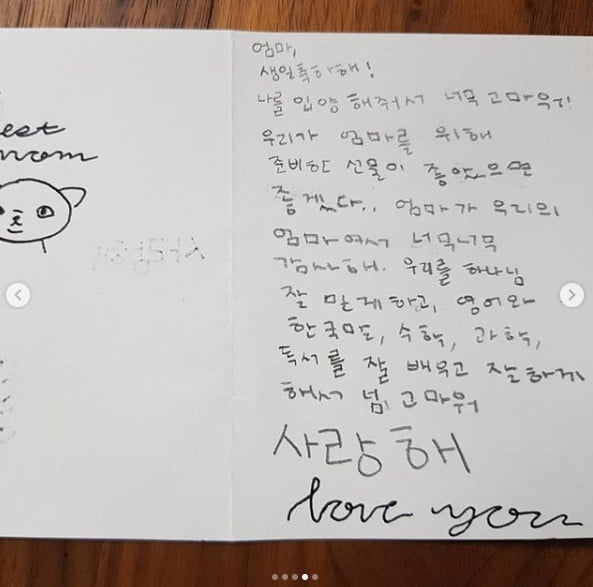 est
mom
엄마,
생일축하해!
나를 입양 해줘서 너무 고마우ㅓ!
우리가 엄마를 위해
준비한 선물이 좋았으면
좋겠다.. 엄마가 우리의
엄마여서 너무너무
감사해. 우리를 하나님
잘 믿게하고, 영어와
한국말도, 수학, 과학,
독서를 잘 배우고 잘하게
해서 넘 고마워
사랑해
love you